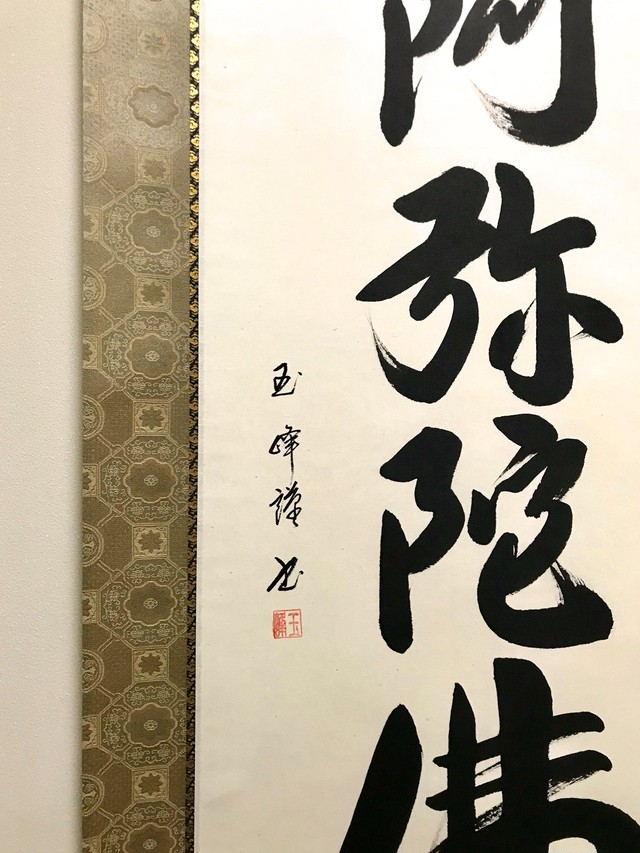 阿弥陀佛
玉峰謹書